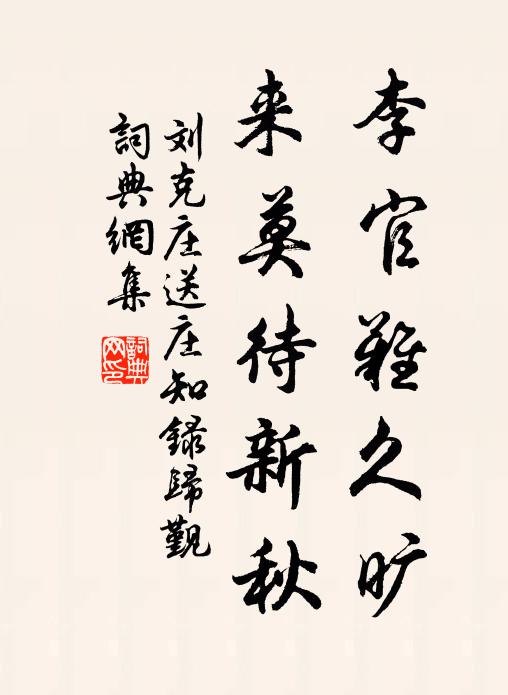 李官難久旷
来莫待新秋
刘克庄送庄知録歸觐
詞典網集
詞典网印